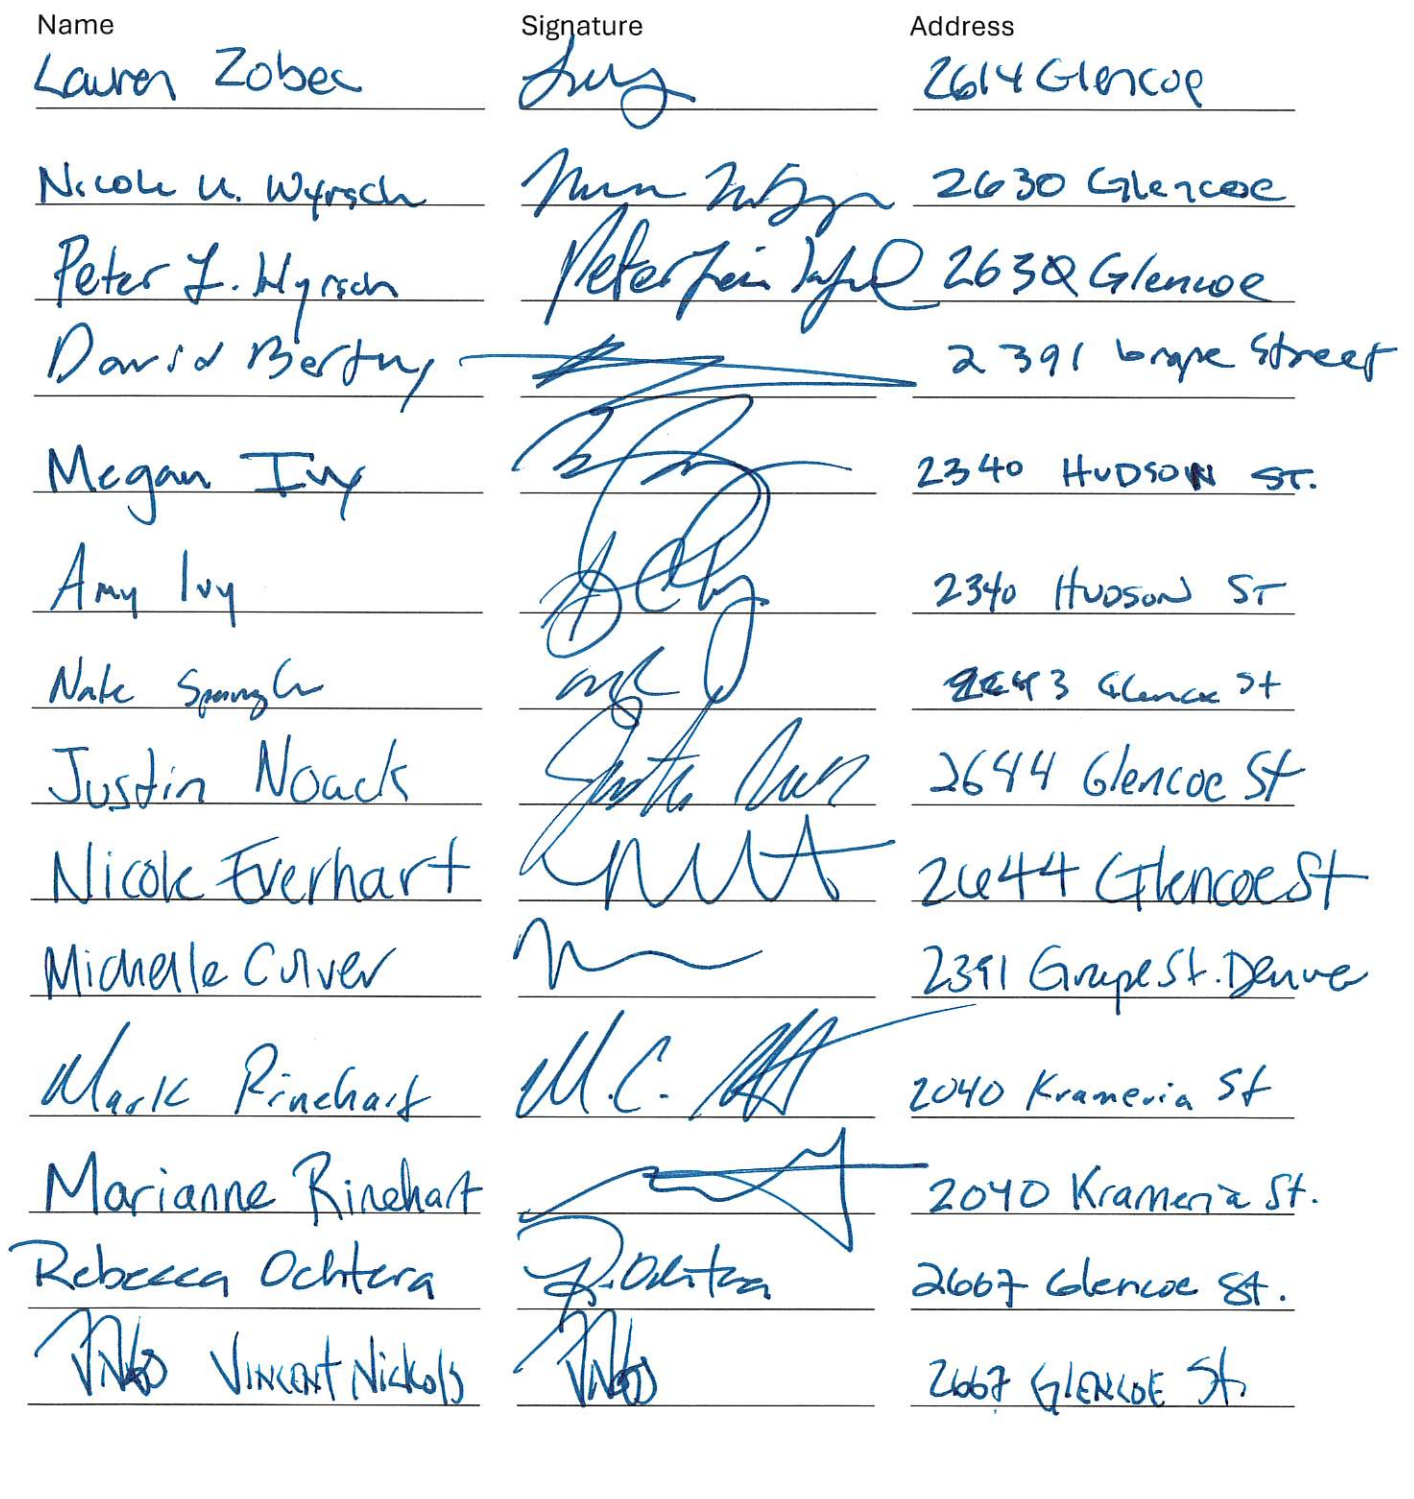 Name Signature Address
Lauren Zobec 2614 Glencoe
Nicole K. Wyrsch 2630 Glencoe
Peter L. Wyrsch 2630 Glencoe
David 2391 Grape Street
Megan Ivy 2340 HUDSON ST.
Amy Ivy 2340 HUDSON ST
Nate 2643 Glencoe St
Justin Noack 2644 Glencoe St
Nicole Everhart 2644 Glencoe St
Michelle Culver 2391 Grape St. Denver
Mark Rinehart M.C. 2040 Krameria St
Marianne Rinehart 2040 Krameria St.
Rebecca Ochtera R. Ochtera 2667 Glencoe St.
VINCENT Nickols 2667 GLENCOE St.